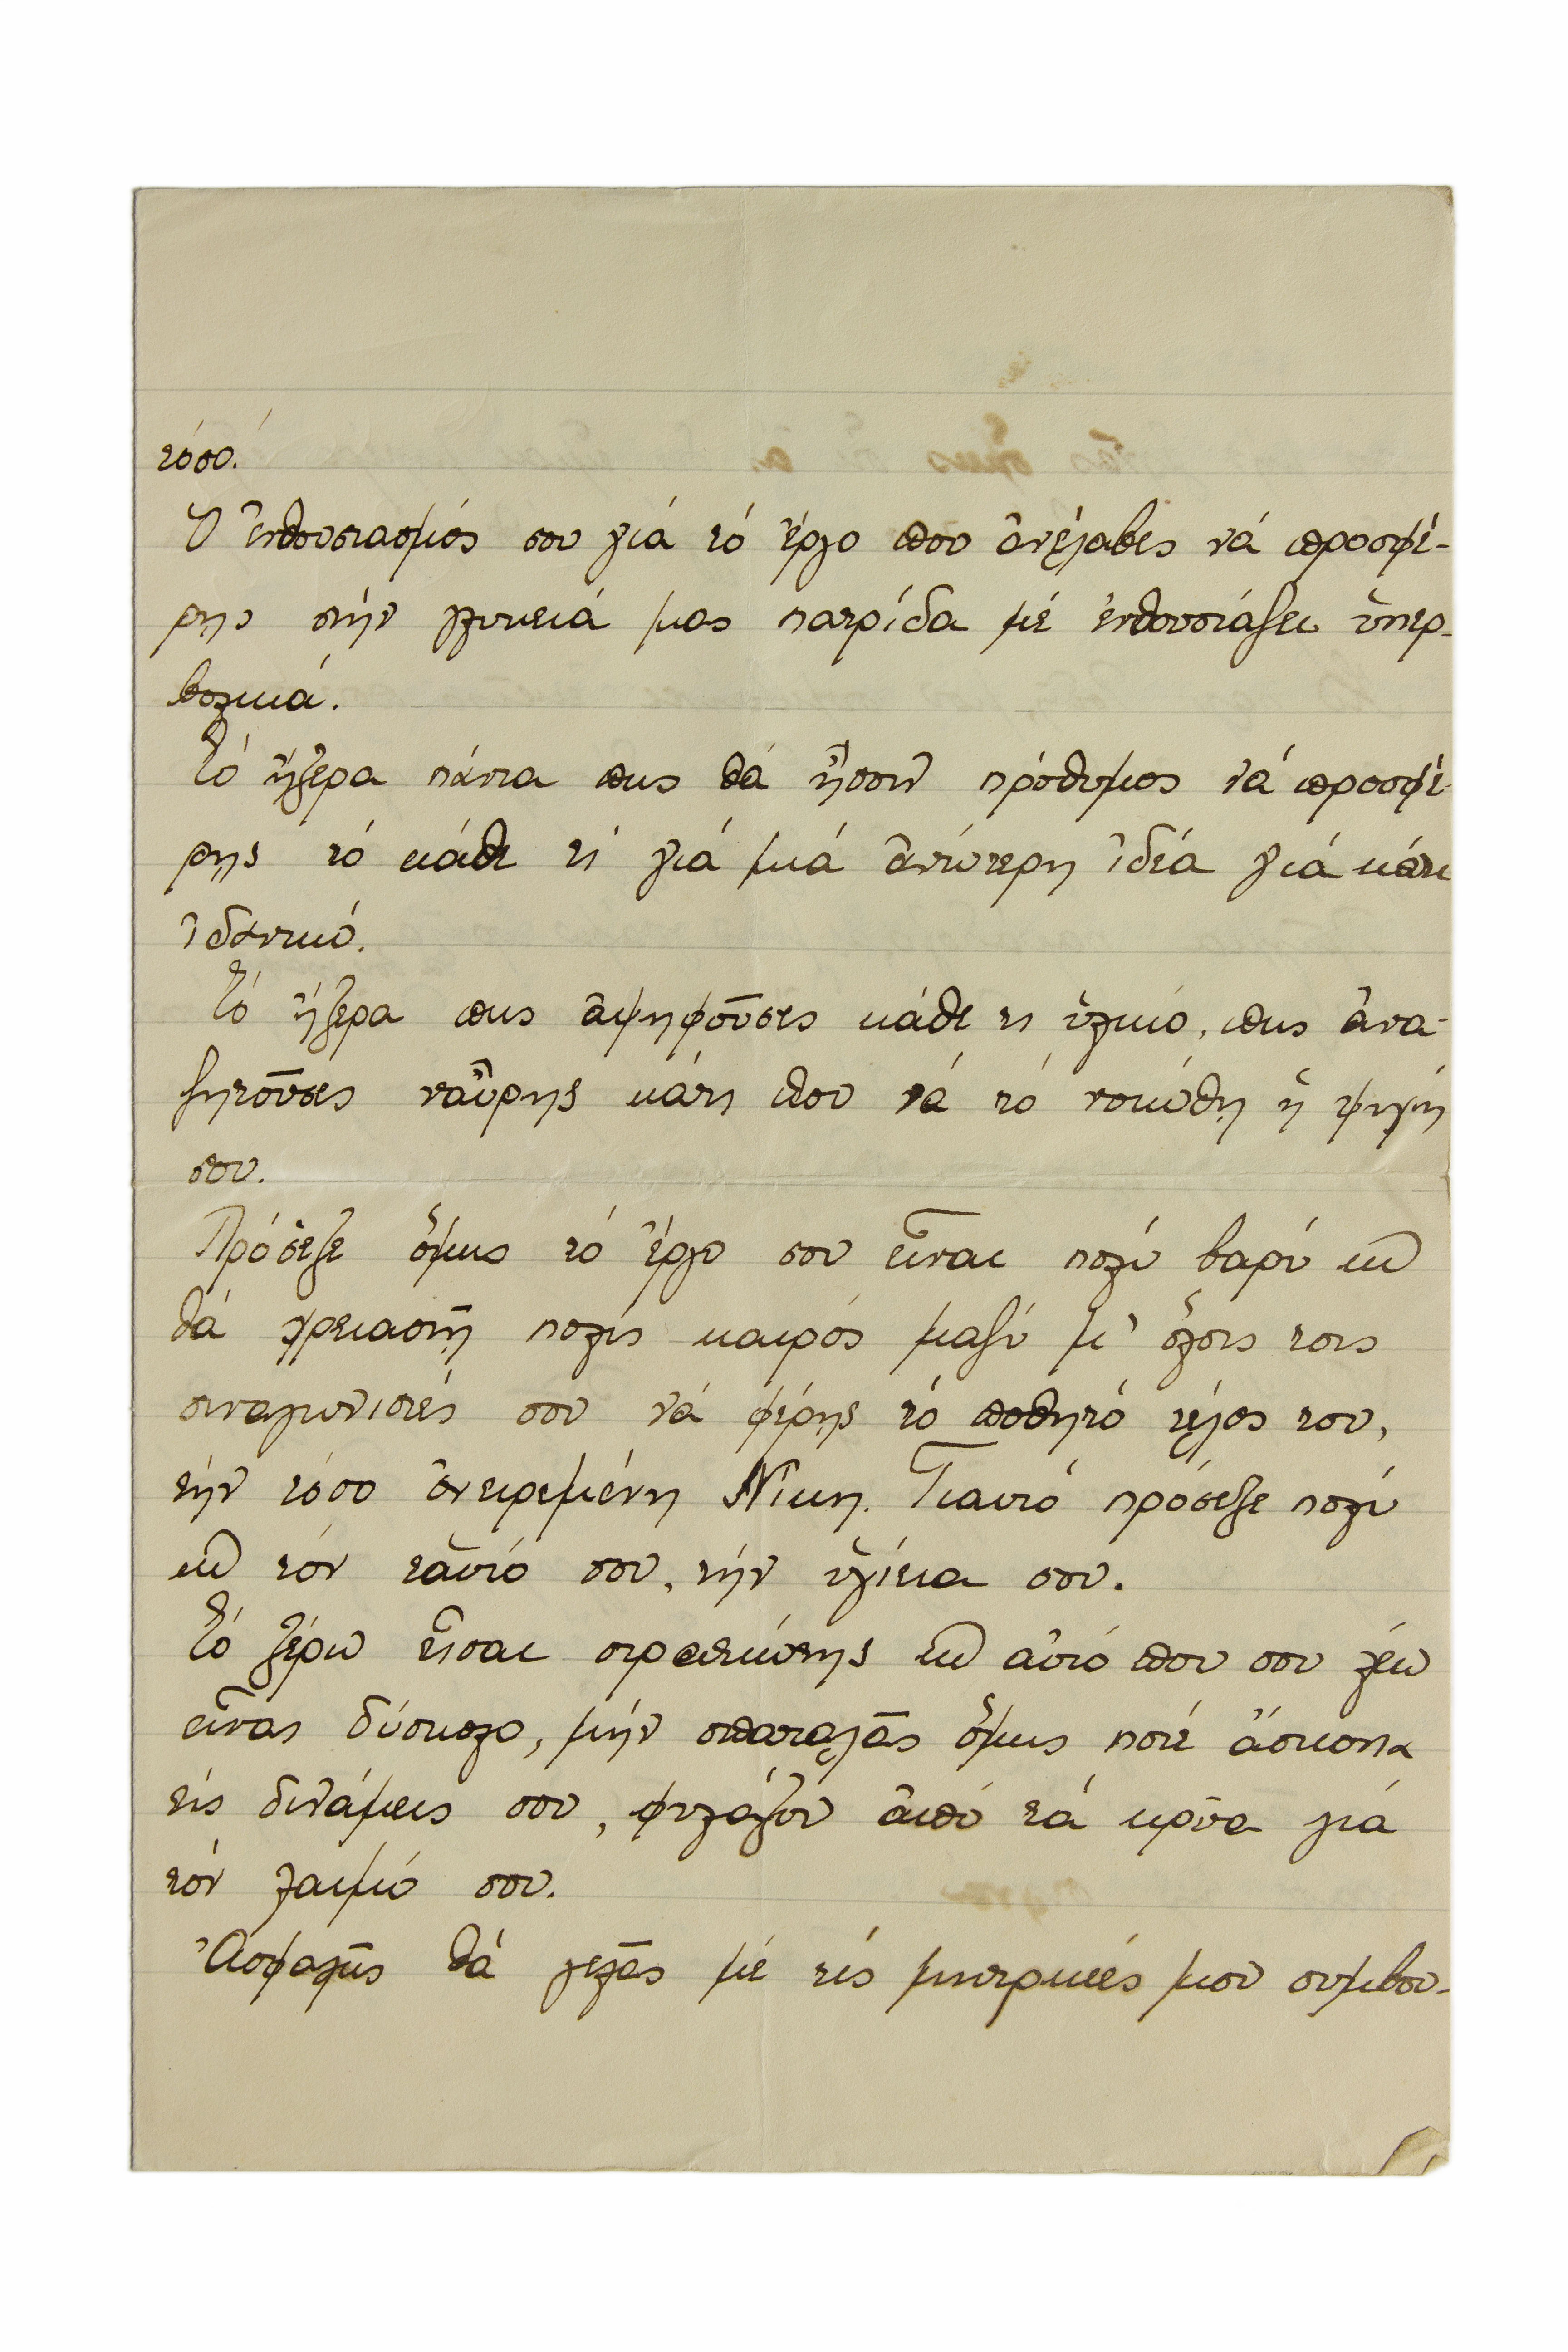 τόσο!
Ὁ ἐνθουσιασμός σου γιά τό ἔργο που ἀνέλαβες νά προσφέ-
ρης στήν γλυκειά μας πατρίδα μέ ἐνθουσιάζει ὑπερ-
βολικά.
Τό ἤξερα πάντα πως θά ἤσουν πρόθυμος νά προσφέ-
ρῃς τό κάθε τί γιά μιά ἀνώτερη ἰδέα γιά κάτι
ἰδανικό.
Τό ἤξερα πως ἀψηφοῦσες κάθε τι ὑλικό, πως ἀνα-
ζητοῦσες ναὔρῃς κάτι που νά τό νοιώθῃ ἡ ψυχή
σου.
Πρόσεξε ὅμως τό ἔργο σου εἶναι πολύ βαρύ και
θά χρειαστῇ πολύς καιρός μαζύ μ' ὅλους τους
συναγωνιστές σου νά φέρῃς τό ποθητό τέλος του,
τήν τόσο ὀνειρεμένη Νίκη. Γιαυτό πρόσεξε πολύ
και τόν ἑαυτό σου, τήν ὑγίεια σου.
Τό ξέρω εἶσαι στρατιώτης και αὐτό που σου λέω
εἶναι δύσκολο, μήν σπαταλᾶς ὅμως ποτέ ἄσκοπα
τίς δυνάμεις σου, φυλάξου ἀπό τά κρῦα γιά
τόν λαιμό σου.
Ἀσφαλῶς θά γελᾶς μέ τίς μητρικές μου συμβου-